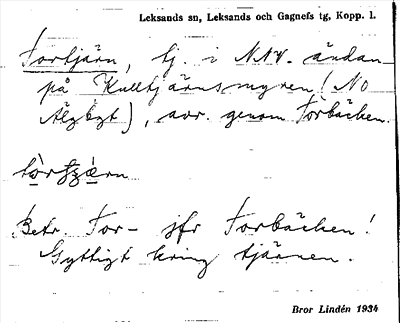 Leksands sn, Leksands och Gagnefs tg, Kopp. l.
Tortjärn, tj. i NNV. ändan
på Kulltjärnsmyren (NO
Älgbgt), avr. genom Torbäcken.
Betr. Tor- jfr Torbäcken!
Gyttigt kring tjärnen.
Bror Lindén 1934